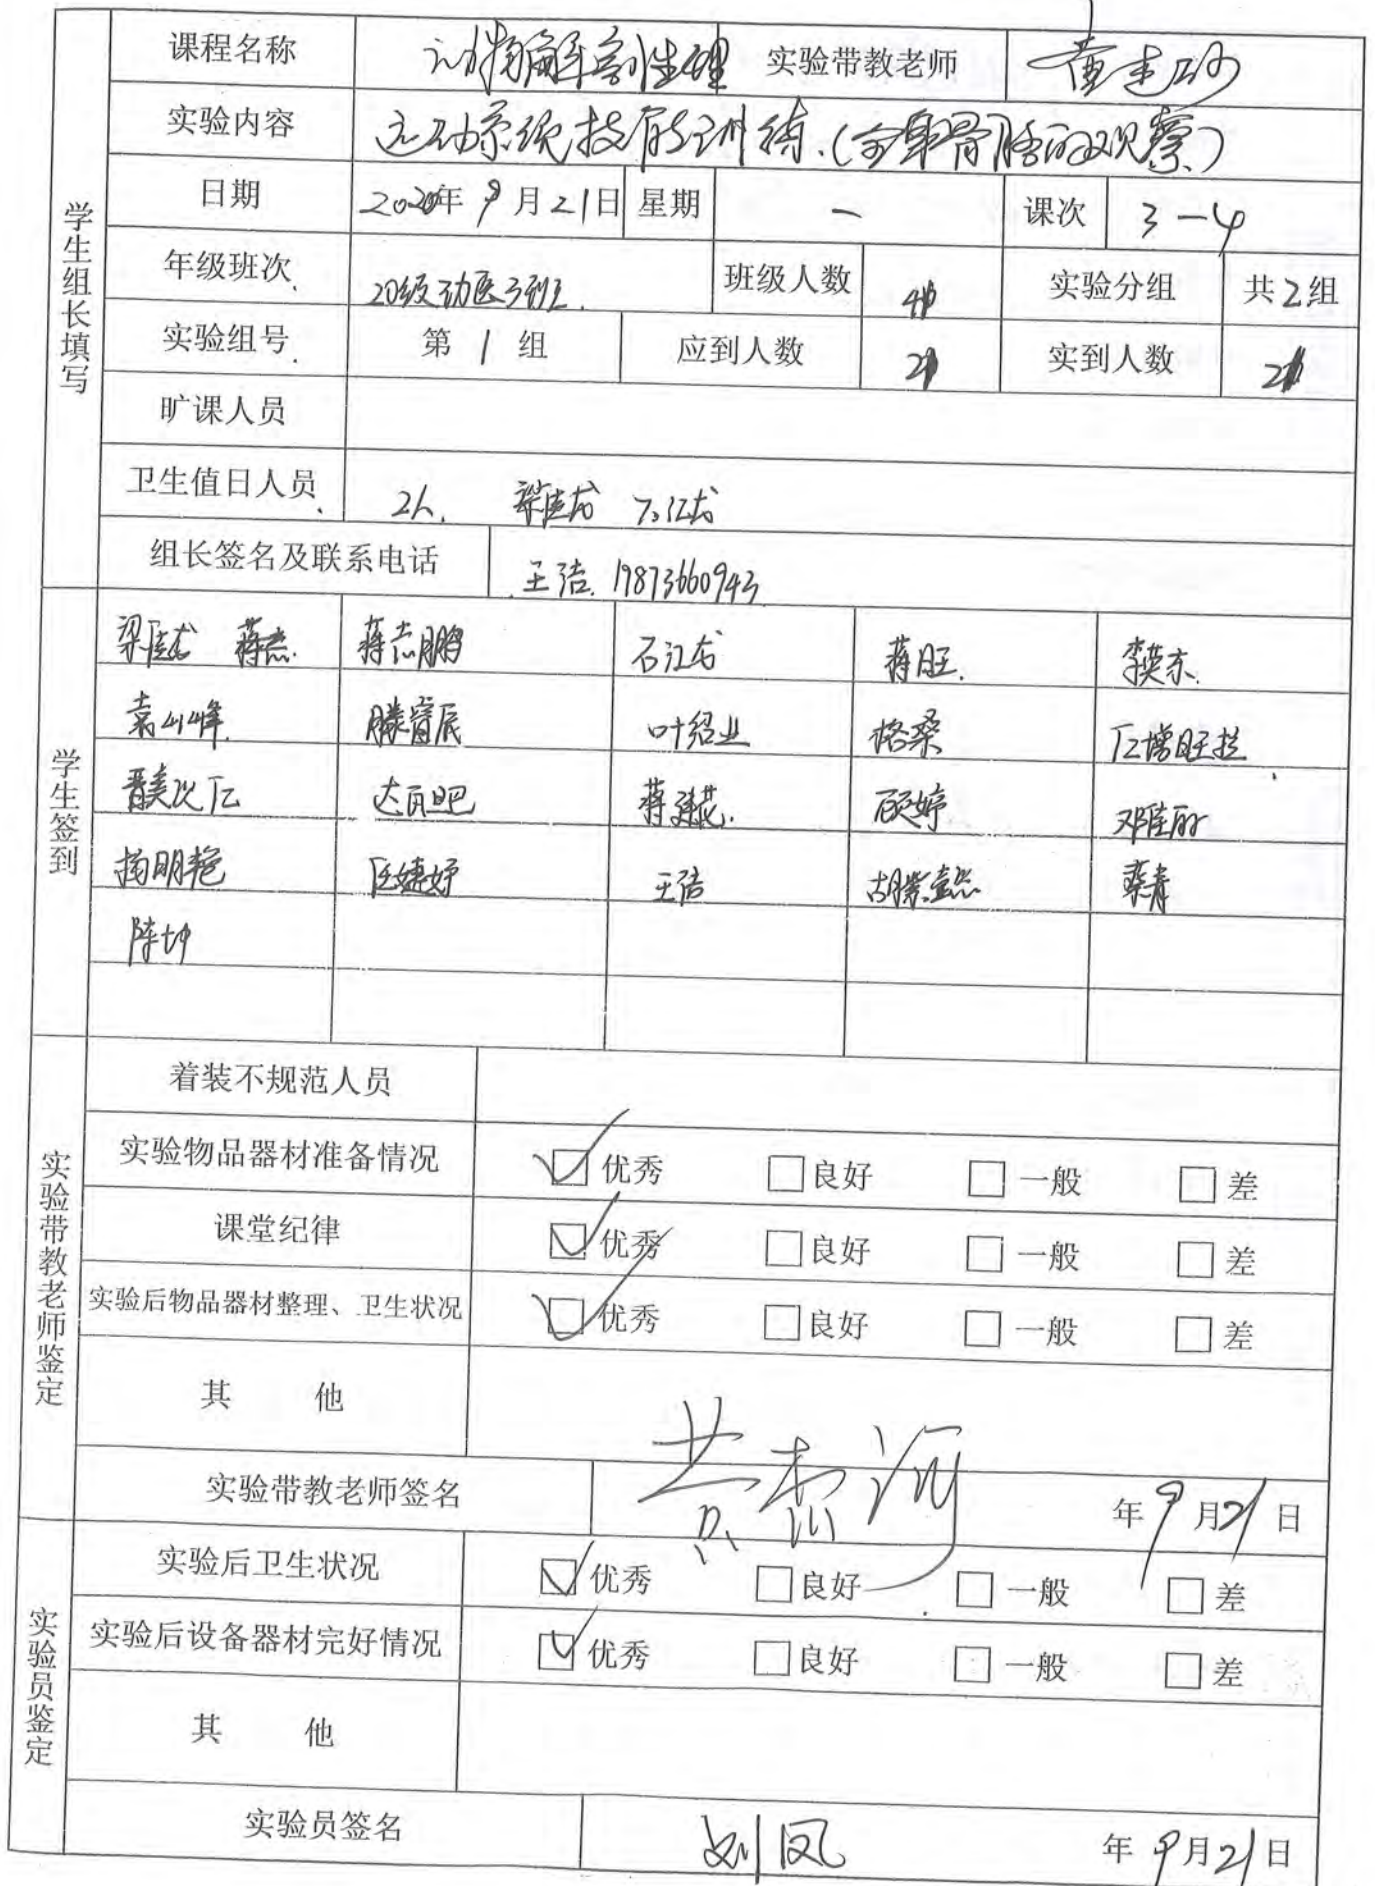 学生组长填写
课程名称 动物解剖生理 实验带教老师
实验内容 运动系统技能训练.(全身骨骼的观察)
日期 2020年9月21日 星期 一 课次 3-4
年级班次 20级动医3班 班级人数 实验分组 共2组
实验组号 第1组 应到人数 21 实到人数 21
旷课人员
卫生值日人员 2人. 梁佳龙 石江龙
组长签名及联系电话 王洁. 19873660943
学生签到
梁佳龙 蒋杰. 蒋志鹏 石江龙 蒋旺. 李英东.
袁小峰 滕富辰 叶绍业 格桑 仁增旺拉
晋美次仁 达瓦 蒋建花. 顾婷 邓佳丽
杨明艳 匡婕妤 王洁 胡紫懿 蔡青
陈坤
实验带教老师鉴定
着装不规范人员
实验物品器材准备情况 ☑优秀 □良好 □一般 □差
课堂纪律 ☑优秀 □良好 □一般 □差
实验后物品器材整理、卫生状况 ☑优秀 □良好 □一般 □差
其 他
实验带教老师签名 年9月21日
实验员鉴定
实验后卫生状况 ☑优秀 □良好 □一般 □差
实验后设备器材完好情况 ☑优秀 □良好 □一般 □差
其 他
实验员签名 刘凤 年9月21日